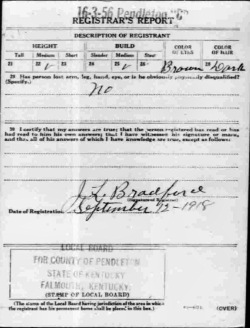 16-3-56 Pendleton "C"
REGISTRAR'S REPORT
DESCRIPTION OF REGISTRANT
HEIGHT BUILD COLOR OF EYES COLOR OF HAIR
Tall Medium Short Slender Medium Stout
21 22 ✓ 23 24 25 ✓ 26 27 Brown 28 Dark
29 Has person lost arm, leg, hand, eye, or is he obviously physically disqualified?
(Specify.)
No
30 I certify that my answers are true; that the person registered has read or has
had read to him his own answers; that I have witnessed his signature or mark,
and that all of his answers of which I have knowledge are true, except as follows:
J. L. Bradford
(Signature of Registrar)
Date of Registration September 12-1918
LOCAL BOARD
FOR COUNTY OF PENDLETON
STATE OF KENTUCKY
FALMOUTH, KENTUCKY
(STAMP OF LOCAL BOARD)
(The stamp of the Local Board having jurisdiction of the area in which
the registrant has his permanent home shall be placed in this box.)
(OVER)